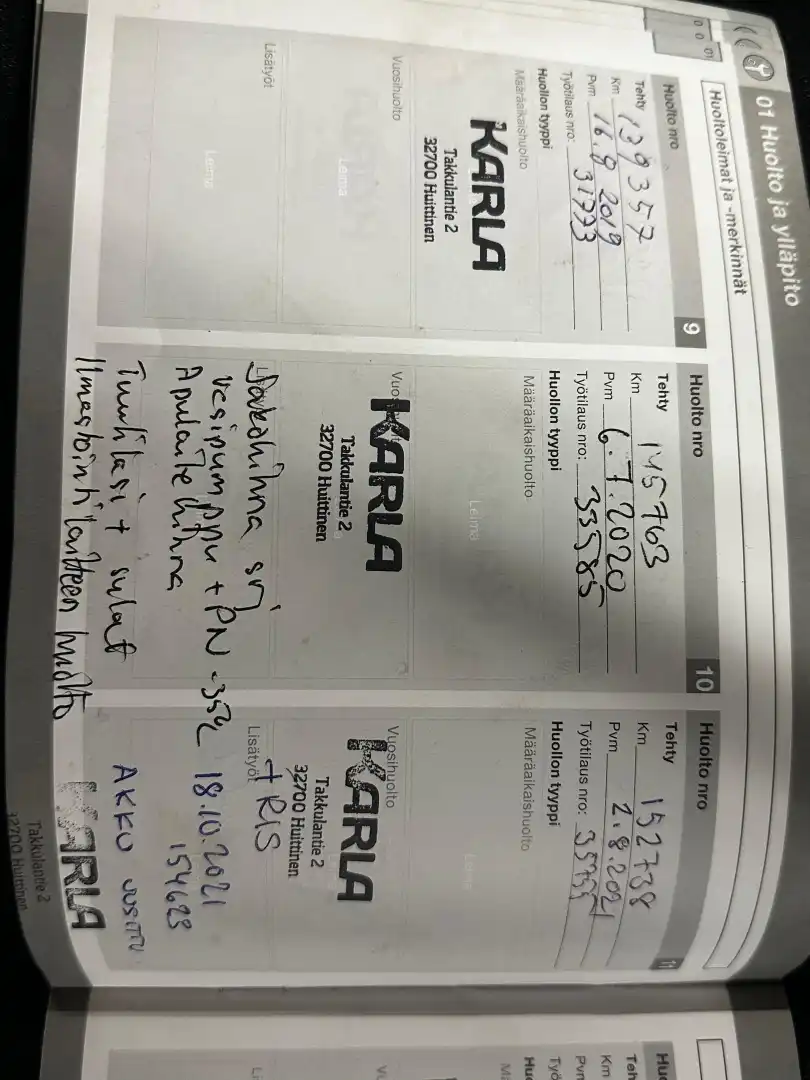 01 Huolto ja ylläpito
Huoltoleimat ja -merkinnät
01
Huolto nro 9
Tehty
Km 139357
Pvm 16.8 2019
Työtilaus nro: 31793
Huollon tyyppi
Määräaikaishuolto
KARLA
Takkulantie 2
32700 Huittinen
Vuosihuolto
Leima
Lisätyöt
Leima
Huolto nro 10
Tehty
Km 145763
Pvm 6.7.2020
Työtilaus nro: 33585
Huollon tyyppi
Määräaikaishuolto
Leima
KARLA
Takkulantie 2
32700 Huittinen
Jakohihna srj
vesipumppu + PN -35%
Apulaitehihna
Tuulilasi + sulat
Ilmastointilaitteen huolto
Huolto nro 11
Tehty
Km 152738
Pvm 2.8.2021
Työtilaus nro:
Huollon tyyppi
Määräaikaishuolto
Leima
Vuosihuolto
KARLA
Takkulantie 2
32700 Huittinen
+ RIS
Lisätyöt
18.10.2021
154623
AKKU UUSITTU
KARLA
Takkulantie 2
32700 Huittinen